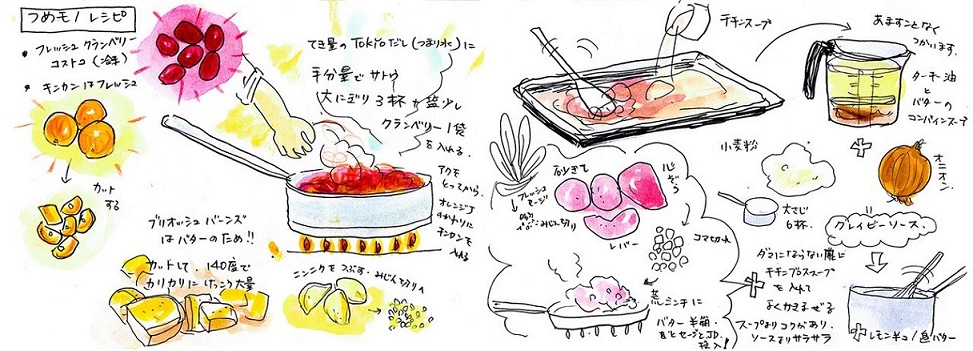 つめモノレシピ
• フレッシュクランベリー
コストコ (冷凍)
• キンカンはフレッシュ
カット
する
てき量の Tokyoだし(つまり水)に
手分量でサトウ
大にぎり3杯が 塩少し
クランベリー1袋
を入れる.
アクを
とってから.
オレンジJ
のかわりに
キンカンを
入れる
ブリオッシュバーンズ
はバターのため!!
カットして. 140度で
カリカリに けっこう大量
ニンニクをつぶす・みじんぎりへ
チキンスープ
あますことなく
つかいます.
ターキー油
と
バターの
コンバインスープ
小麦粉
オニオン.
大さじ
6杯.
グレイビーソース.
ダマにならない様に
チキンプラススープ
を入れて
よくかきまぜる
スープよりコクがあり.
ソースよりサラサラ
レモン
バター
フレッシュ
セージ
みじん切り
砂ぎも
レバー
コマ切れ
荒ミンチに
バター半箱・
セージとJD.
投入!